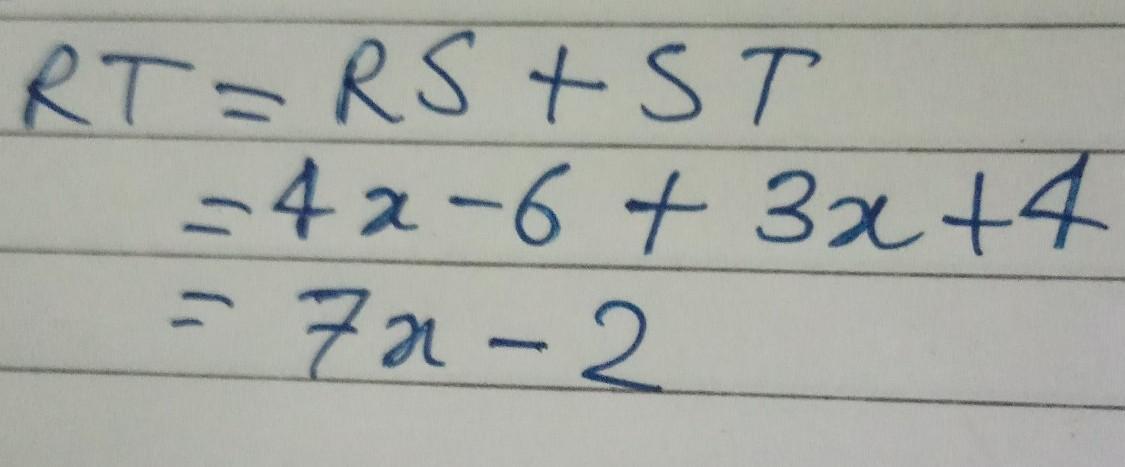 RT = RS + ST
= 4x - 6 + 3x + 4
= 7x - 2